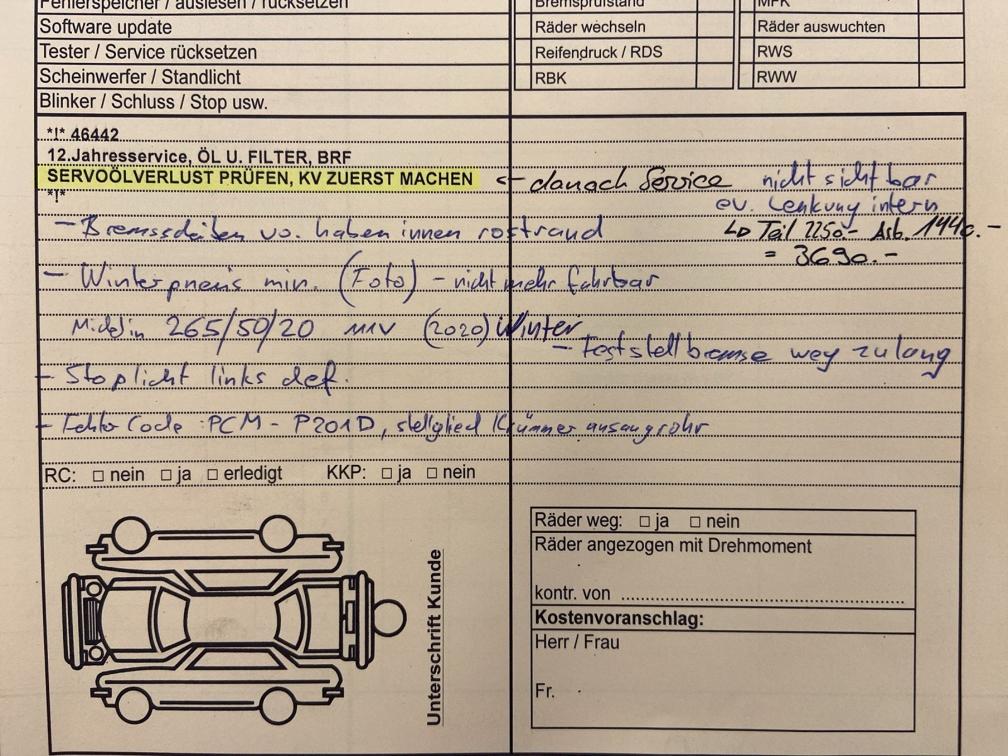 Fehlerspeicher / auslesen / rücksetzen
Software update
Tester / Service rücksetzen
Scheinwerfer / Standlicht
Blinker / Schluss / Stop usw.
Bremsprüfstand
Räder wechseln
Reifendruck / RDS
RBK
MFK
Räder auswuchten
RWS
RWW
*!* 46442
12.Jahresservice, ÖL U. FILTER, BRF
SERVOÖLVERLUST PRÜFEN, KV ZUERST MACHEN ← danach Service
*!*
nicht sichtbar
ev. Lenkung intern
↳ Teil 2250.- Arb. 1440.-
= 3690.-
- Bremsscheiben vo. haben innen rostrand
- Winterpneus min. (Foto) - nicht mehr fahrbar
Michelin 265/50/20 111V (2020) Winter
- Feststellbremse weg zu lang
- Stoplicht links def.
- Fehler Code : PCM - P201D, stellglied Krümmer ansaugrohr
RC: □ nein □ ja □ erledigt KKP: □ ja □ nein
Unterschrift Kunde
Räder weg: □ ja □ nein
Räder angezogen mit Drehmoment
kontr. von
Kostenvoranschlag:
Herr / Frau
Fr.